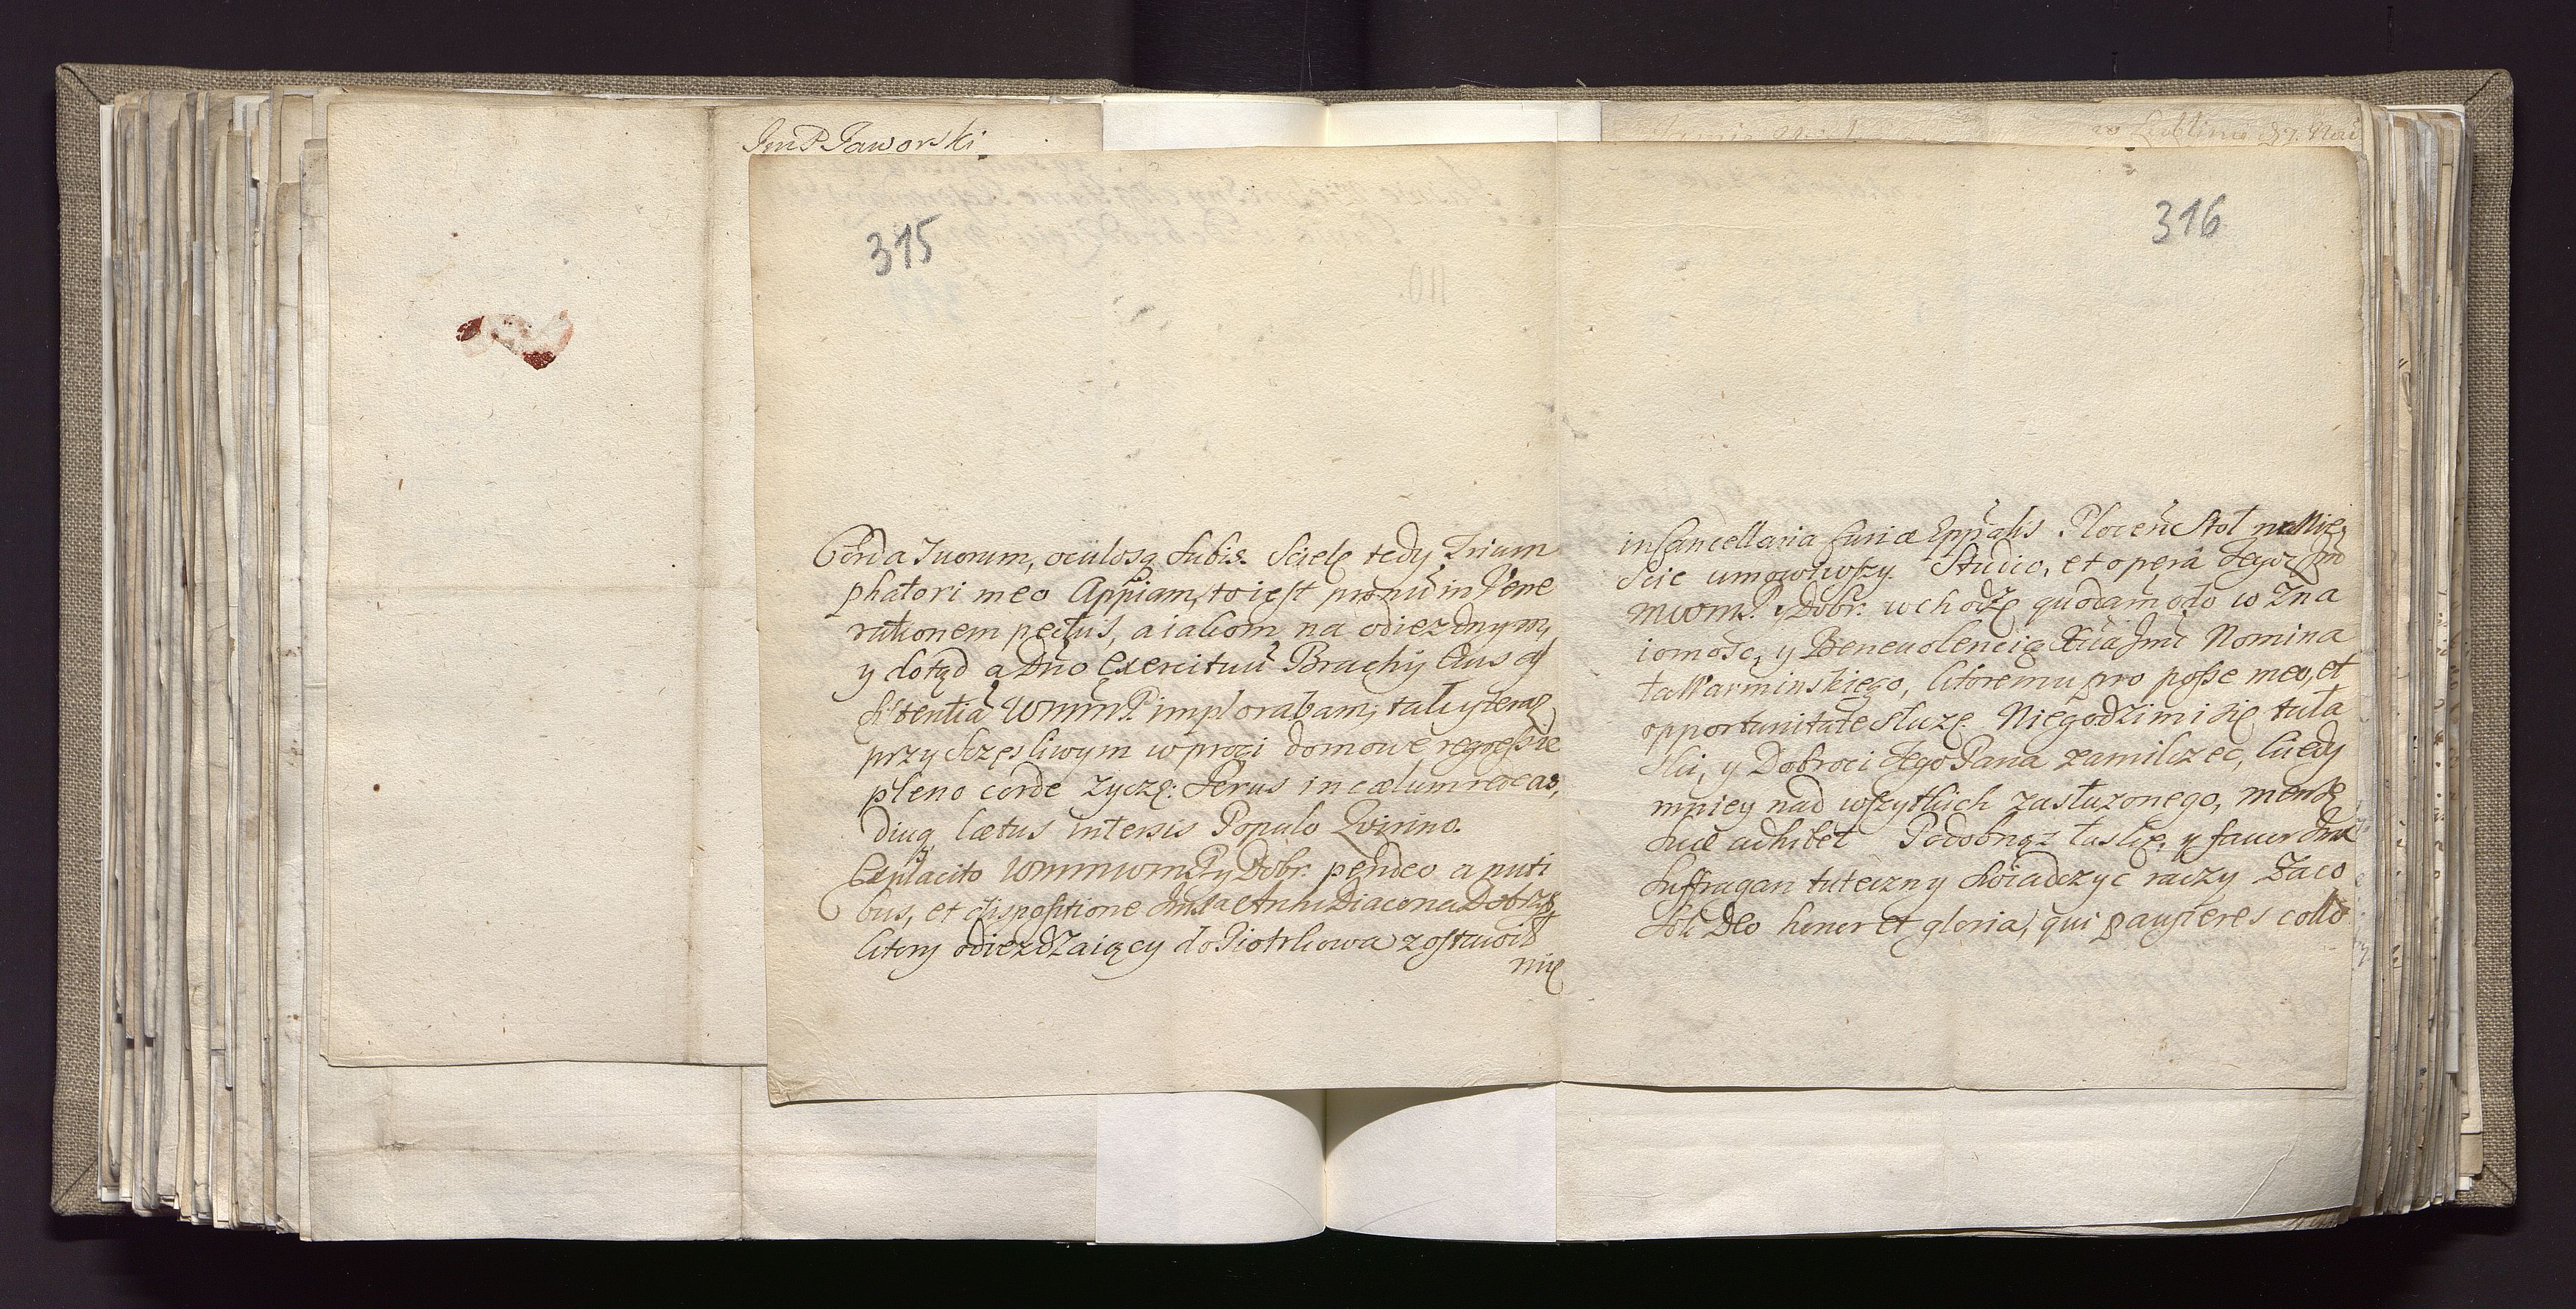 JmP Jaworski
w Lublinie
315
Corda Tuorum, oculosq subis. Scielę tedy Trium
phatori meo Appiam, to iest pronū in Vene
rationem pectus, a iakom na odiezdnym,
y dotąd a Dno Exercituū Brachÿ Eius as
sistentiā WmmP. implorabam, tak y teraz
przy szczęsliwym w progi domowe regressie
pleno corde zyczę: Serus in cælum redeas,
diuq lætus intersis Populo Qvirino.
Ex placito WmmwomPy Dobr. pendeo a nuti
bus, et dispositione Jmsa Archidiacona Dobrz
ktory odiezdzaiący do Piotrkowa zostawił
mię
316
in Cancellaria Curiæ Eppalis Plocen Stoł na Mie
scie umowiwszy. Studio, et operâ tegoz Jm
mwom. P. y Dobr. wchodzę quodammodo w Zna
iomosc, y Beneuolencią Xcia Jmc Nomina
ta Warminskiego, ktoremu pro posse meo, et
opportunitate słuzę. Niegodzi mi się tuta
ski, y Dobroci tego Pana zamilczec, kiedy
mniey nad wszytkich zasłuzonego, mensę
suæ adhibet Podobnąz łaskę, y fauor
Suffragan tuteczny swiadczyc raczy Za co
soli Deo honor et gloria, qui pauperes collo